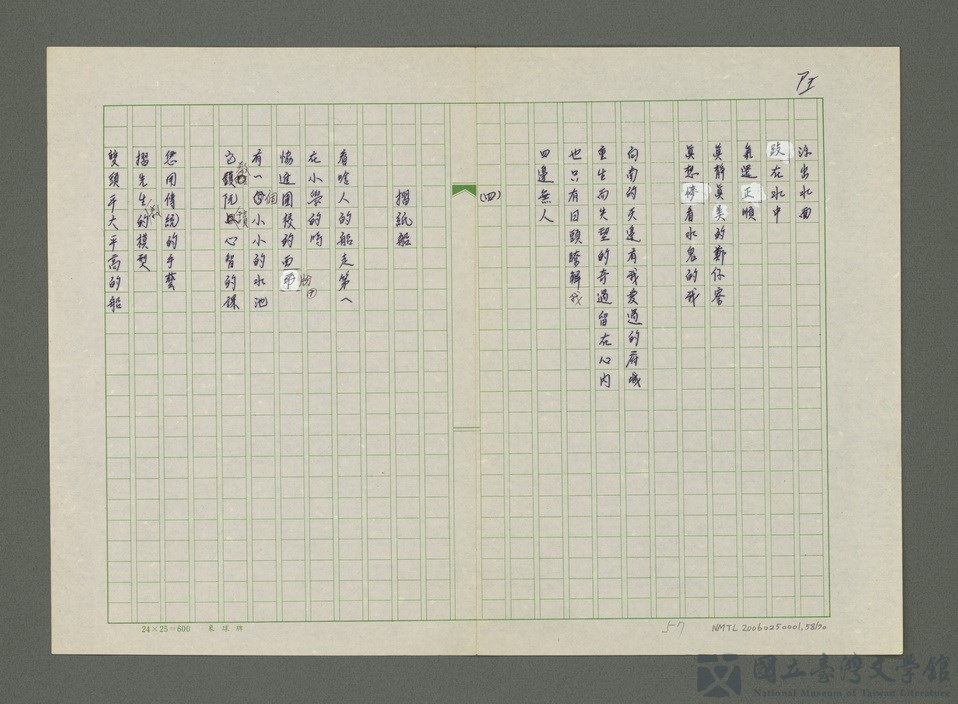 泳出水面
跤在水中
氣溫正順
真靜真美的鄭仔寮
真想停看水鬼的我
向南的天邊有我愛過的府城
重生而失望的奇遇留在心內
也只有日頭瞭解我
四邊無人
(四)
摺紙船
看啥人的船走第一
在小學的時
恰逛團校的西
有一個小小的水池
心智的課
您用傳統的手藝
摺先生教的模型
雙頭平大平高的船
24×25=600
57
NMTL20060250001,58/70
國立臺灣文學館
National Museum of Taiwan Literature